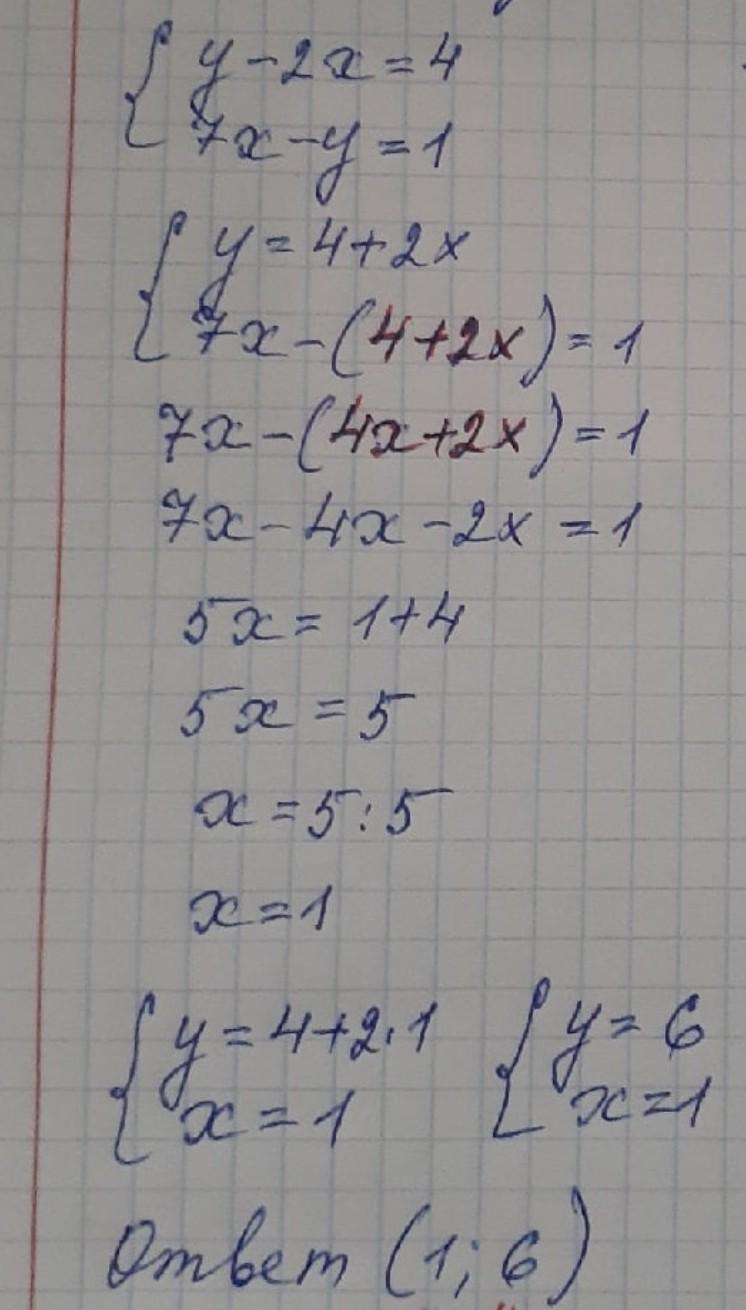 y-2x=4
7x-y=1
y=4+2x
7x-(4+2x)=1
7x-(4x+2x)=1
7x-4x-2x=1
5x=1+4
5x=5
x=5:5
x=1
y=4+2·1 y=6
x=1 x=1
Ответ (1; 6)